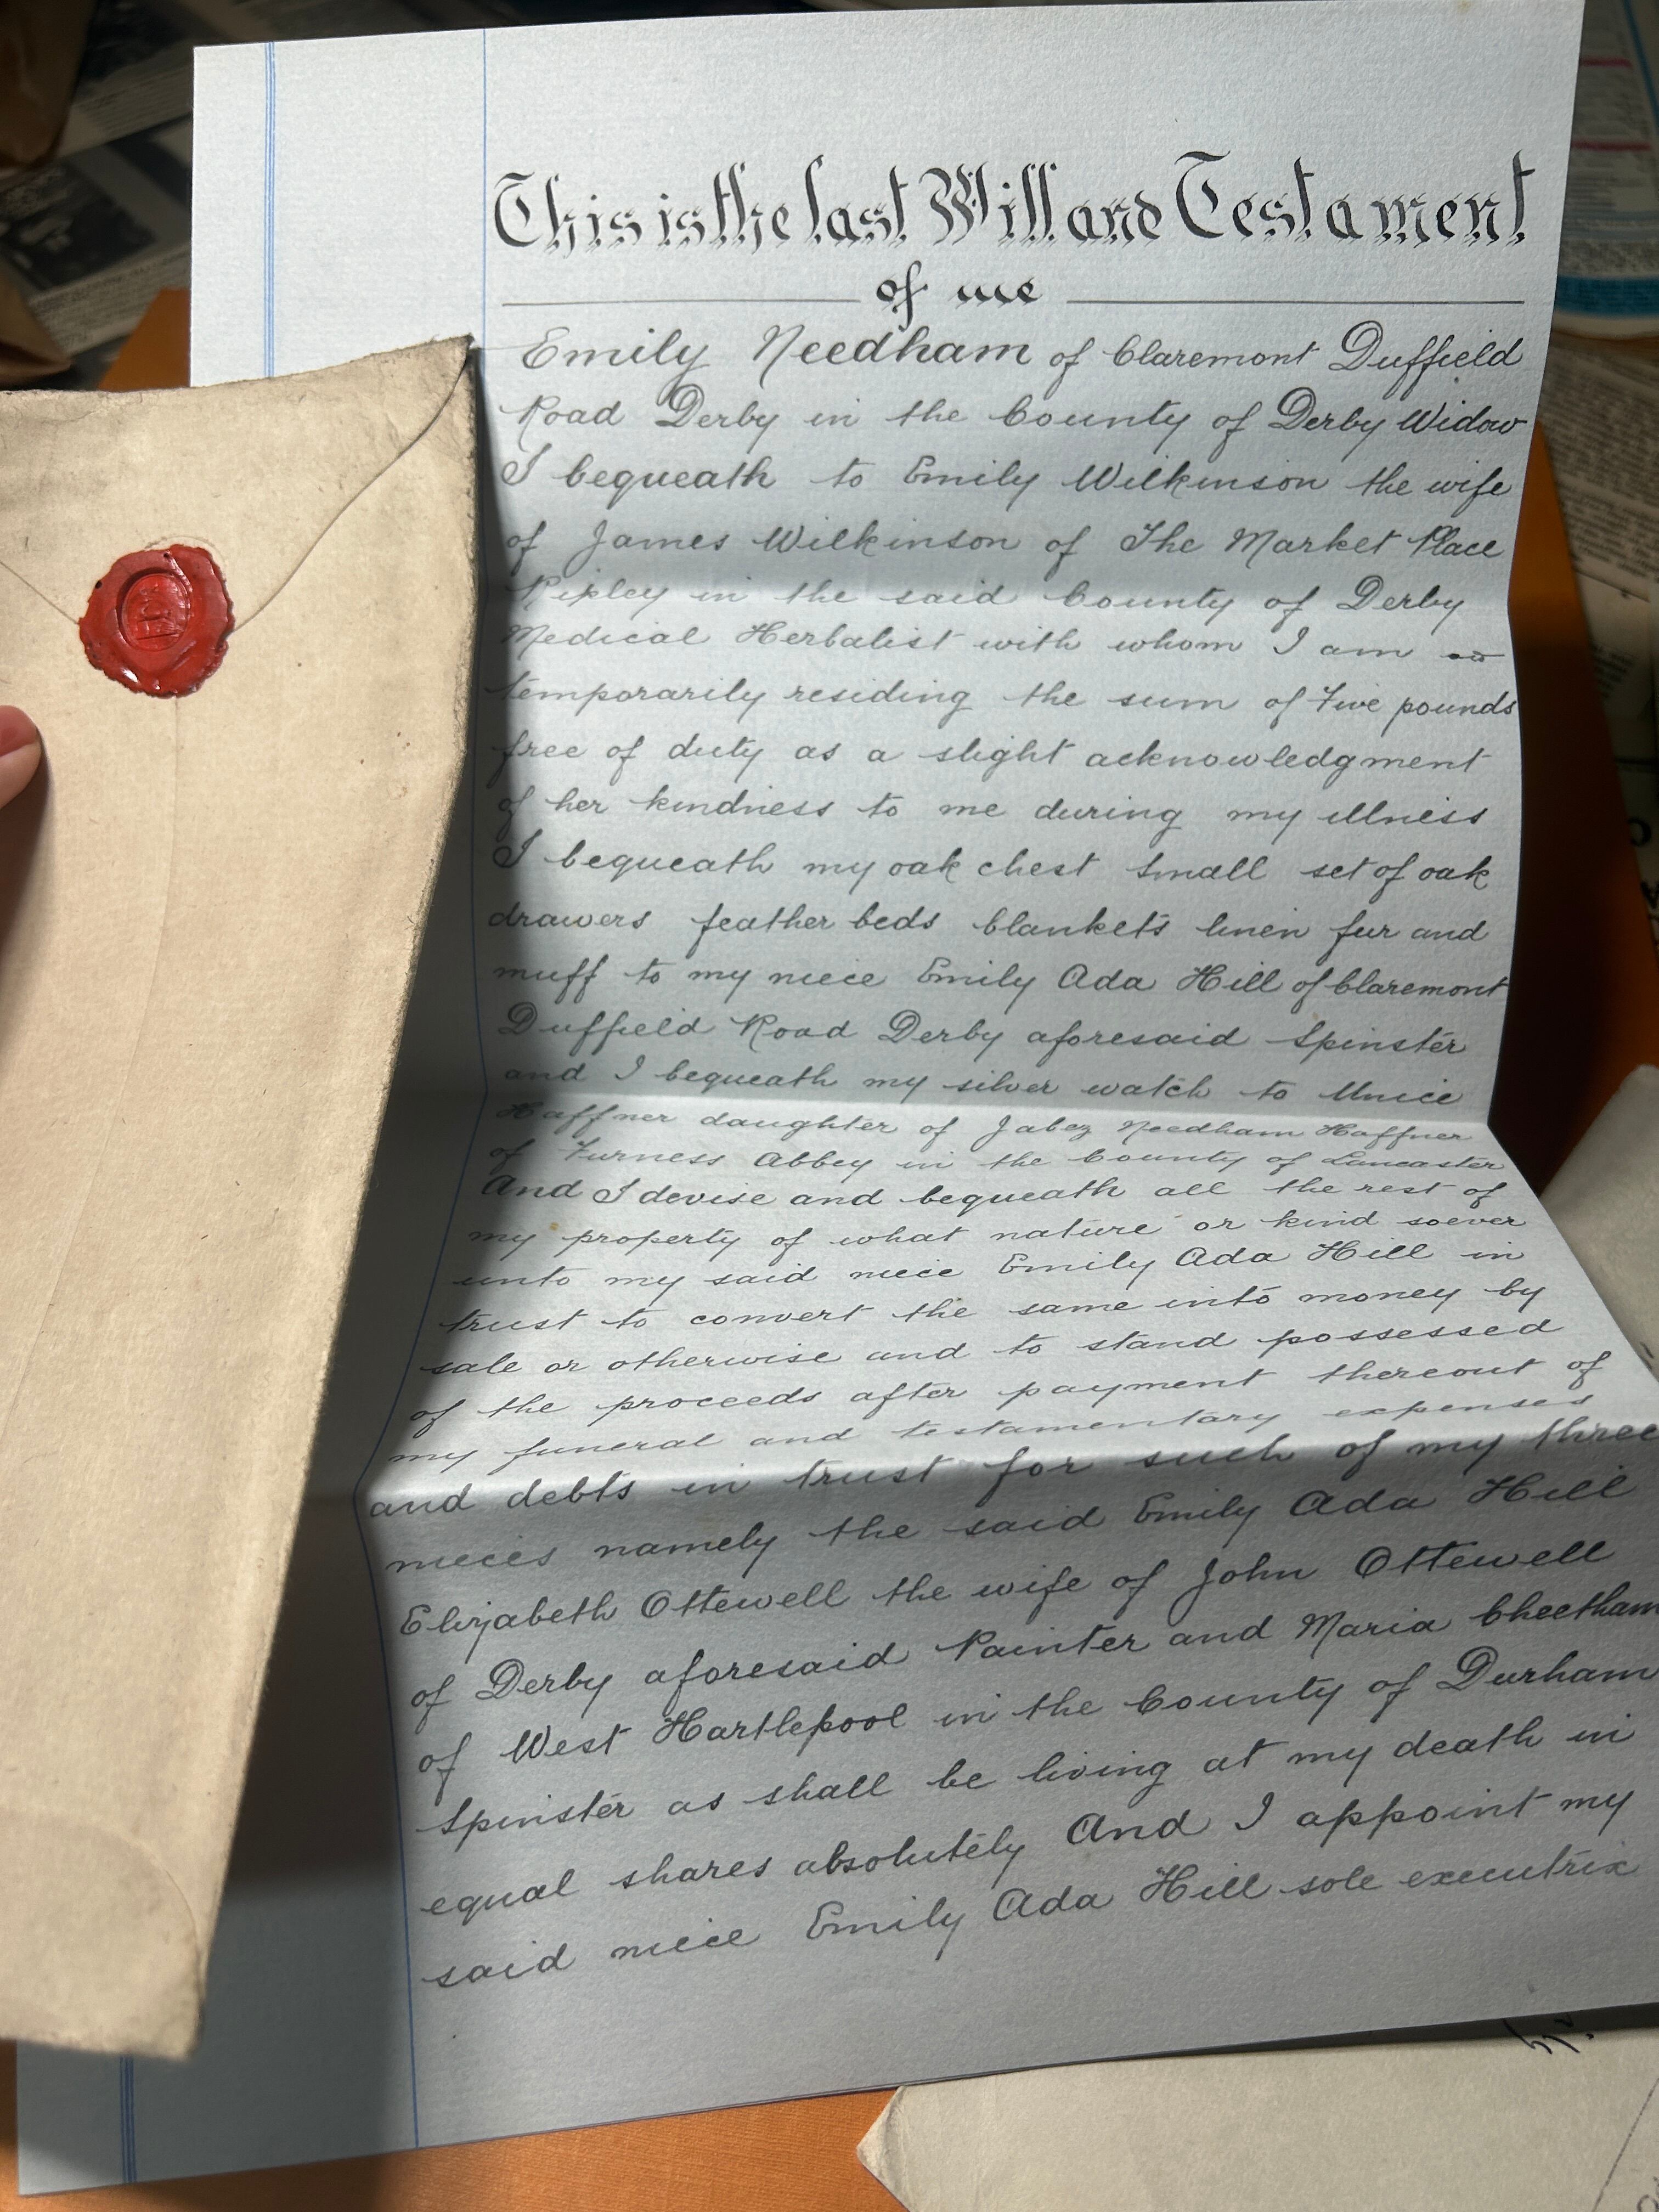 This is the last Will and Testament
of me
Emily Needham of Claremont Duffield
Road Derby in the County of Derby Widow
I bequeath to Emily Wilkinson the wife
of James Wilkinson of The Market Place
Ripley in the said County of Derby
Medical Herbalist with whom I am
temporarily residing the sum of Five pounds
free of duty as a slight acknowledgment
of her kindness to me during my illness
I bequeath my oak chest small set of oak
drawers feather beds blankets linen fur and
muff to my niece Emily Ada Hill of Claremont
Duffield Road Derby aforesaid Spinster
and I bequeath my silver watch to Unice
Haffner daughter of Jabez Needham Haffner
of Furness Abbey in the County of Lancaster
And I devise and bequeath all the rest of
my property of what nature or kind soever
unto my said niece Emily Ada Hill in
trust to convert the same into money by
sale or otherwise and to stand possessed
of the proceeds after payment thereout of
my funeral and testamentary expenses
and debts in trust for such of my three
nieces namely the said Emily Ada Hill
Elizabeth Ottewell the wife of John Ottewell
of Derby aforesaid Painter and Maria Cheetham
of West Hartlepool in the County of Durham
Spinster as shall be living at my death in
equal shares absolutely And I appoint my
said niece Emily Ada Hill sole executrix